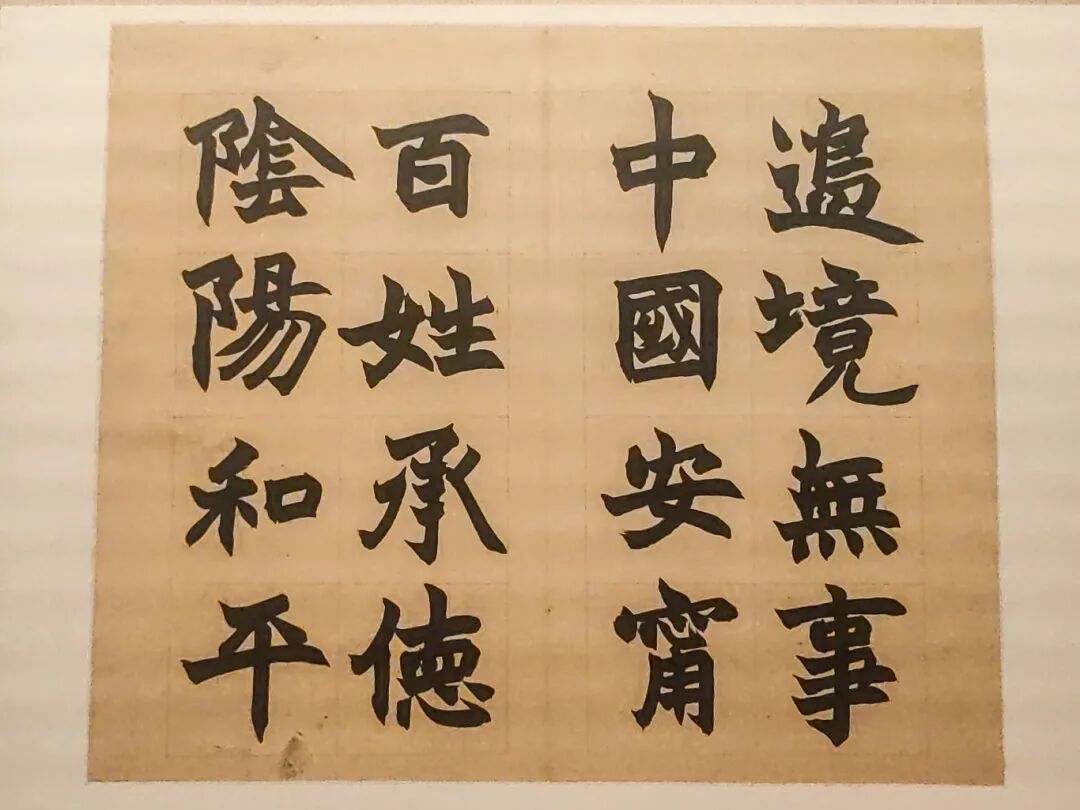 邊境無事
中國安甯
百姓承德
陰陽和平